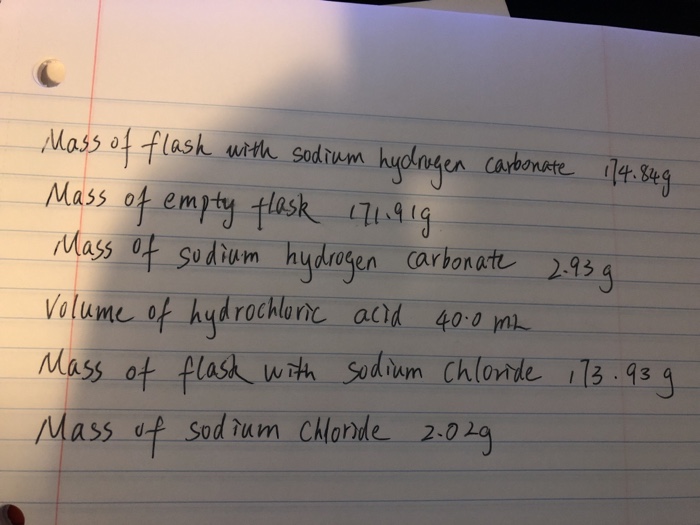 Mass of flash with sodium hydrogen carbonate 174.84g
Mass of empty flask 171.91g
Mass of sodium hydrogen carbonate 2.93 g
Volume of hydrochloric acid 40.0 mL
Mass of flask with sodium chloride 173.93 g
Mass of sodium chloride 2.02g